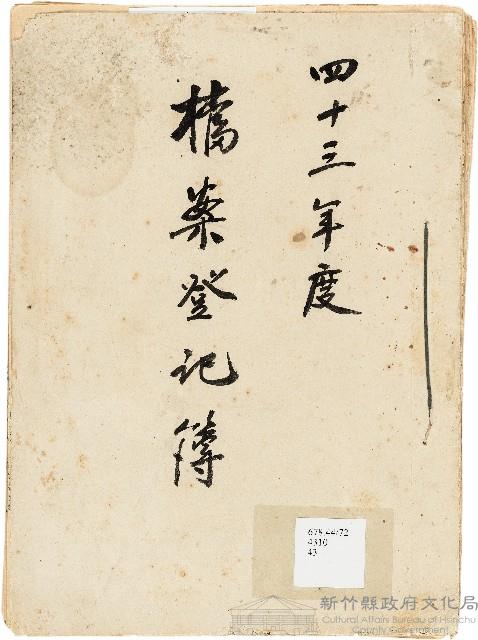 四十三年度
檔案登記簿
678.44/72
4310
43
新竹縣政府文化局
Cultural Affairs Bureau of Hsinchu
County Government